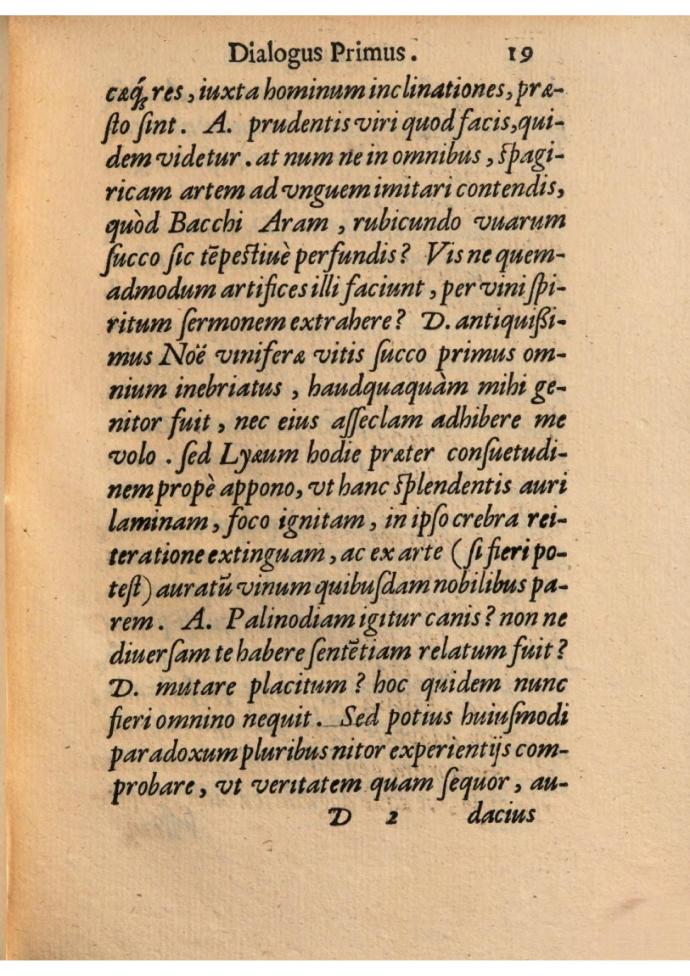 Dialogus Primus. 19
cæq́; res, iuxta hominum inclinationes, præ-
ſto ſint. A. prudentis viri quod facis, qui-
dem videtur. at num ne in omnibus, ſpagi-
ricam artem ad vnguem imitari contendis,
quòd Bacchi Aram, rubicundo vuarum
ſucco ſic tēpeſtiuè perfundis? Vis ne quem-
admodum artifices illi faciunt, per vini ſpi-
ritum ſermonem extrahere? D. antiquißi-
mus Noë viniferæ vitis ſucco primus om-
nium inebriatus, haudquaquàm mihi ge-
nitor fuit, nec eius aſſeclam adhibere me
volo. ſed Lyæum hodie præter conſuetudi-
nem propè appono, vt hanc ſplendentis auri
laminam, foco ignitam, in ipſo crebra rei-
teratione extinguam, ac ex arte (ſi fieri po-
teſt) auratū vinum quibuſdam nobilibus pa-
rem. A. Palinodiam igitur canis? non ne
diuerſam te habere ſentētiam relatum fuit?
D. mutare placitum? hoc quidem nunc
fieri omnino nequit. Sed potius huiuſmodi
paradoxum pluribus nitor experientijs com-
probare, vt veritatem quam ſequor, au-
D 2 dacius